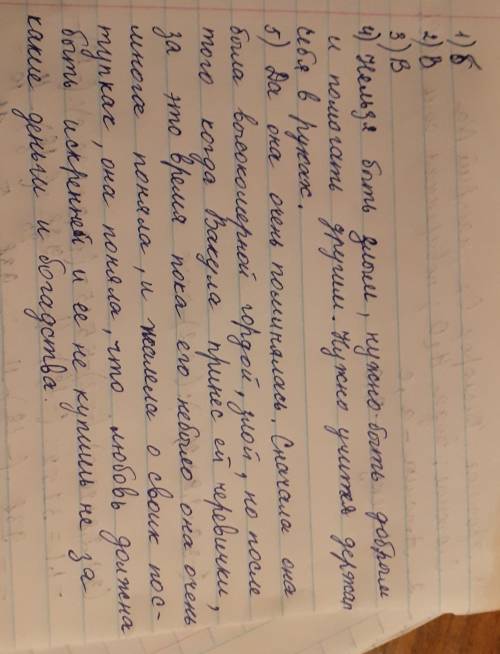 1) б
2) В
3) В
4) Нельзя быть злым, нужно быть добрым
и помогать другим. Нужно учится держат
себя в руках.
5) Да она очень поминялась. Сначала она
была высокомерной гордой, злой, но после
того когда Вакула принёс ей черевички,
за это время пока его небыло она очень
многое поняла, и жалела о своих пос-
тупках, она поняла, что любовь должна
быть искренней и её не купишь не за
какие деньги и богадства.